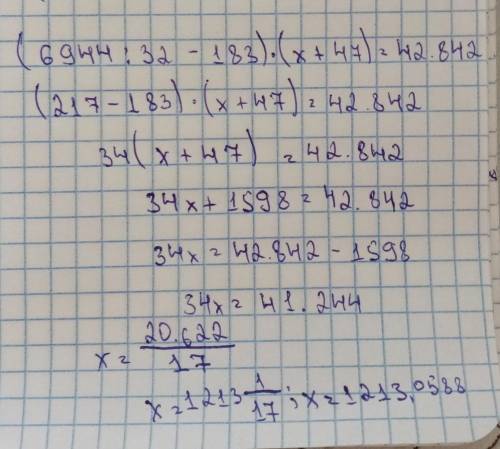 (6944:32 - 183)·(x+47)=42.842
(217-183)·(x+47)=42.842
34(x+47) =42.842
34x+1598=42.842
34x=42.842-1598
34x=41.244
x= 20.622/17
x=1213 1/17; x=1213,0588